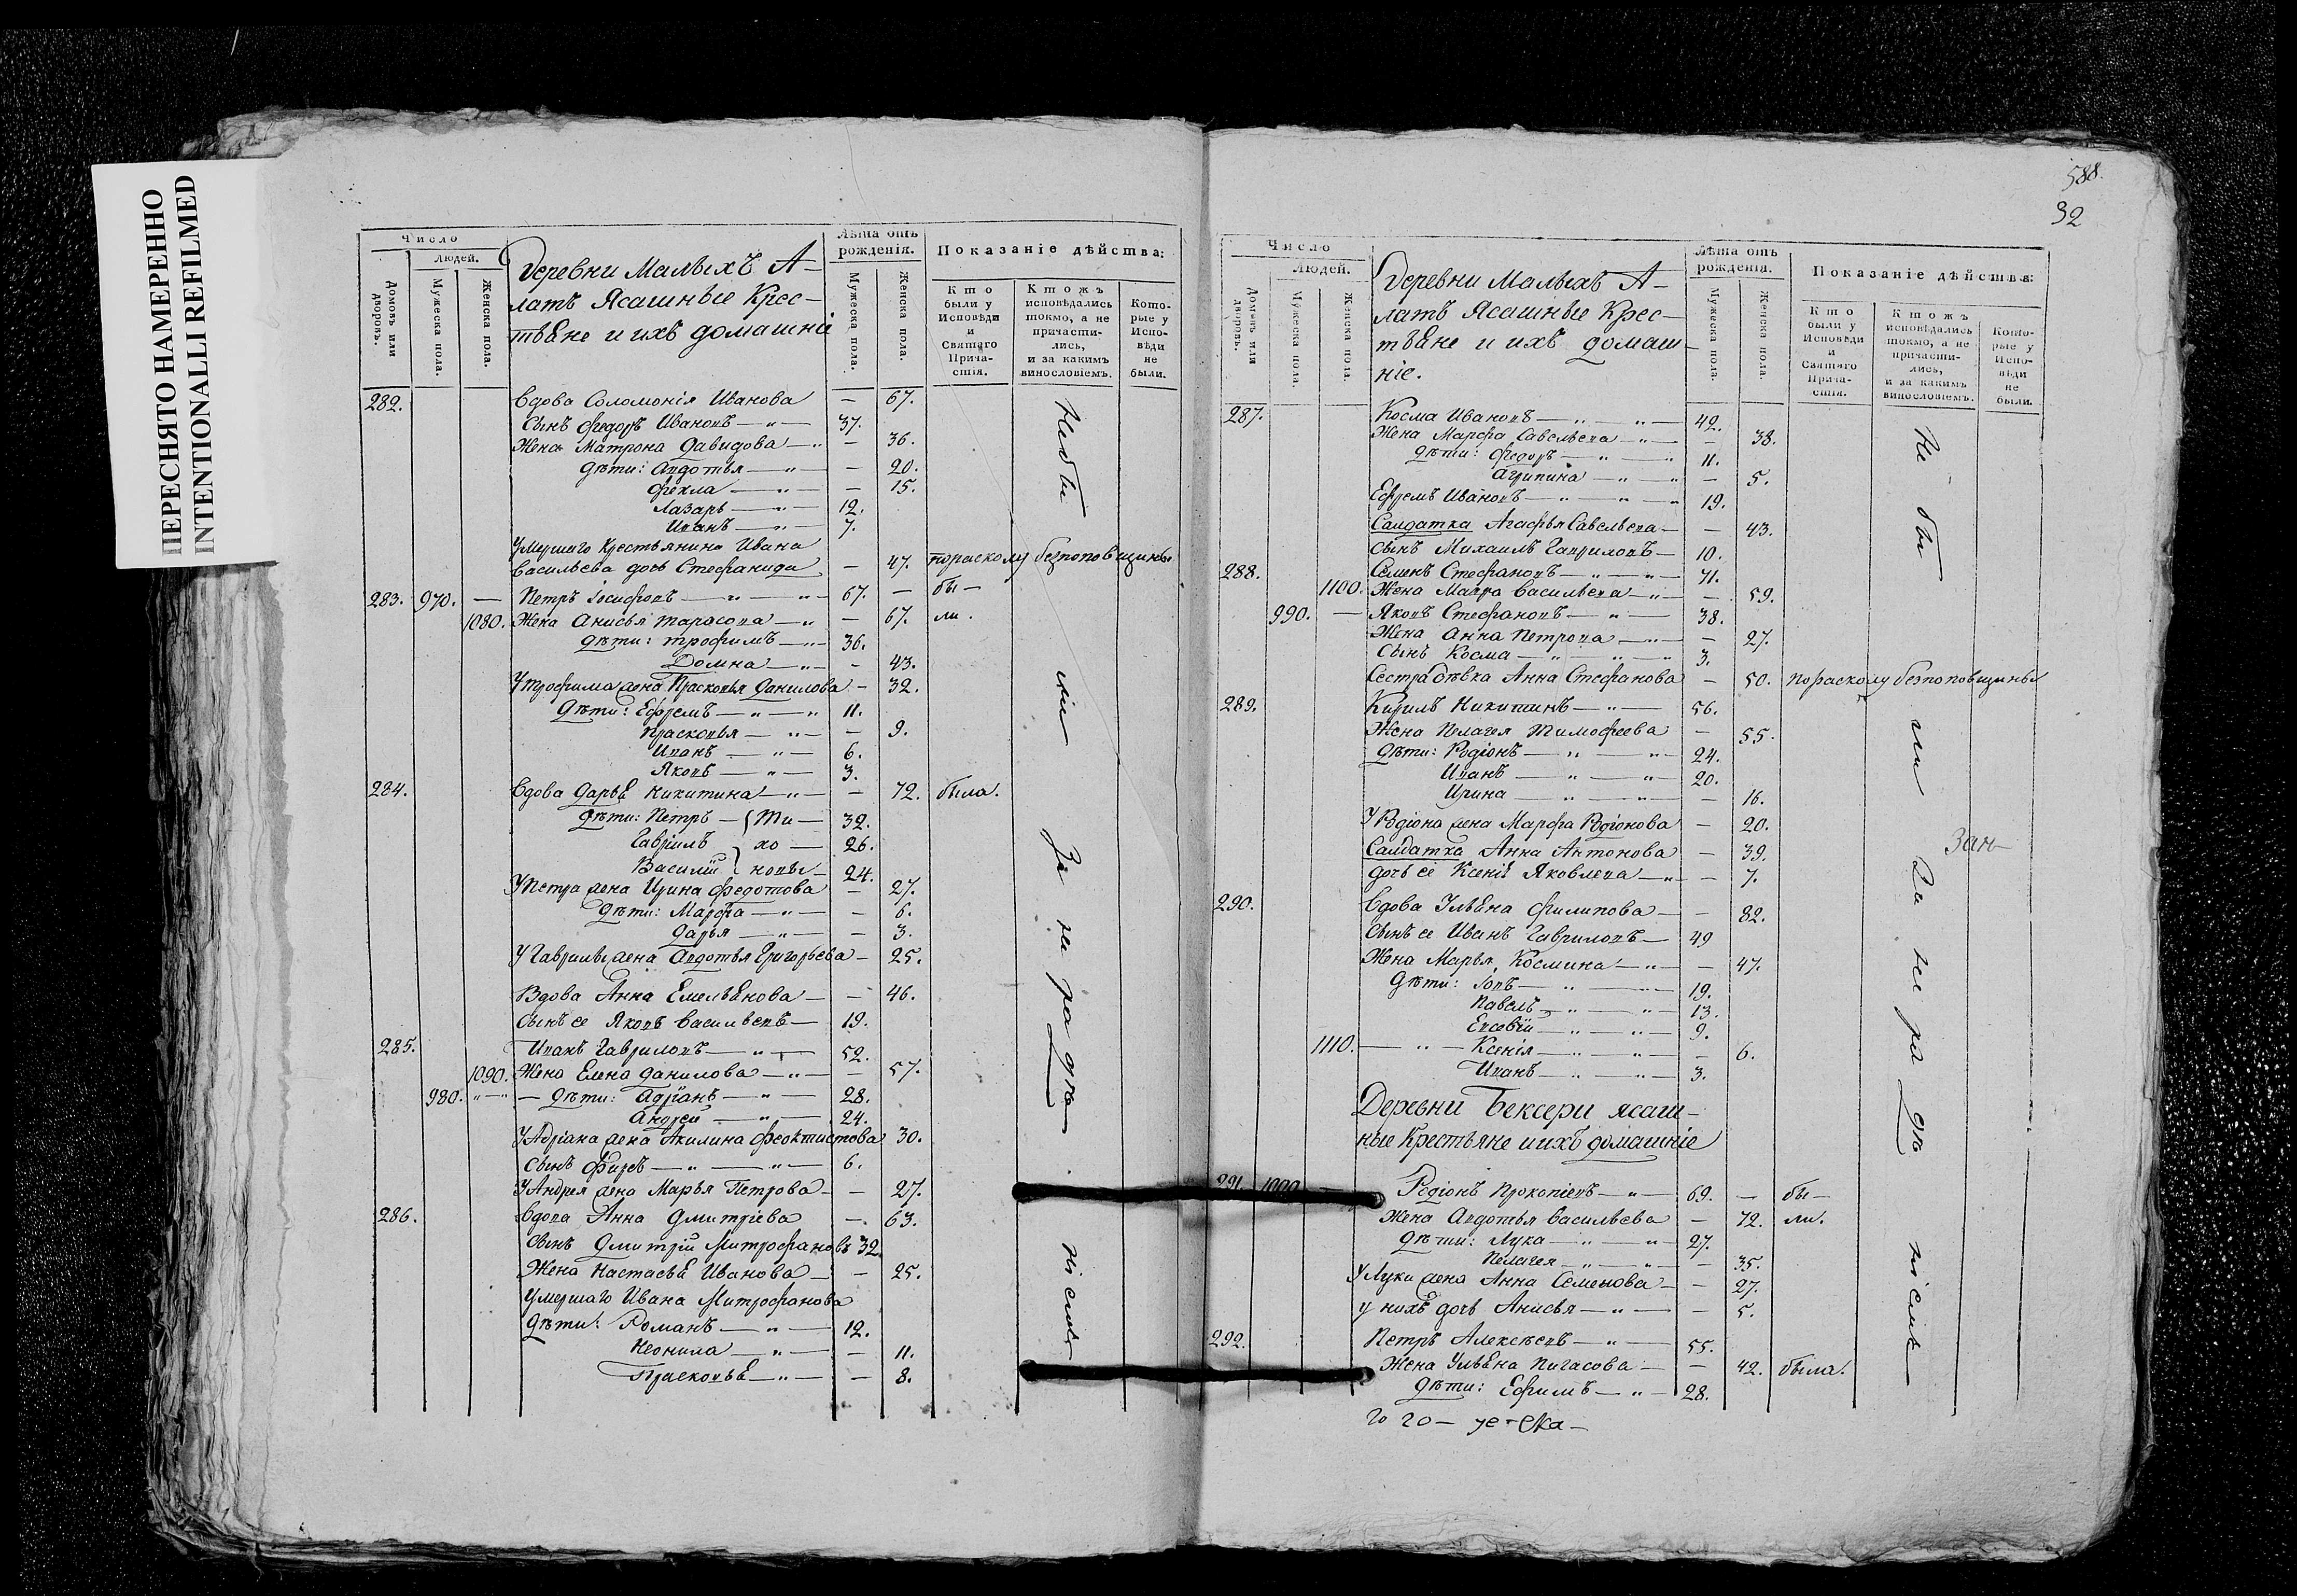 ПЕРЕСНЯТО НАМЕРЕННО
INTENTIONALLI REFILMED
Число
Людей.
Домовъ или дворовъ.
Мужеска пола.
Женска пола.
Деревни Малыхъ А-
латъ Ясашные Крес-
тьяне и ихъ домашнiе
Лѣта отъ рожденiя.
Мужеска пола.
Женска пола.
Показанiе дѣйства:
Кто были у Исповѣди и Святаго Прича-стiя.
Ктожъ исповѣдались токмо, а не причасти-лись, и за какимъ винословiемъ.
Кото-рые у Испо-вѣди не были.
282. Вдова Соломонiя Иванова — 67.
Сынъ Федоръ Ивановъ — „ — 37.
Жена Матрона Давидова — „ — 36.
Дѣти: Авдотья — „ — — 20.
Фекла — „ — — 15.
Лазарь — „ — 12.
Иванъ — „ — 7.
Умершаго Крестьянина Ивана
Васильева дочь Стефанида — 47. порасколу безпоповщины
283. 970. — Петръ Iосифовъ — „ — „ — 67. — бы —
1080. Жена Анисья Тарасова — „ — 67. ли.
Дѣти: Трофимъ — „ — 36.
Домна — „ — - 43.
У Трофима жена Прасковья Данилова - 32.
Дѣти: Ефремъ — „ — „ 11.
Прасковья — „ — — 9.
Иванъ — „ — 6.
Яковъ — „ — 3.
284. Вдова Дарья Никитина — „ — — 72. была.
Дѣти: Петръ — Ти — 32.
Гаврiилъ хо — 26.
Василiй новы — 24.
У Петра жена Ирина Федотова — 27.
Дѣти: Марфа — „ — — 6.
Дарья — „ — — 3.
У Гаврилы жена Авдотья Григорьева — 25.
Вдова Анна Емельянова — — 46.
Сынъ ее Яковъ Васильевъ — 19.
285. Иванъ Гавриловъ — „ — 52.
1090. Жена Елена Данилова — „ — — 57.
980. „ — „ — Дѣти: Адрiанъ — „ — 28.
Андрей — „ — 24.
У Адрiана жена Акилина Феоктистова 30.
Сынъ Фирсъ — „ — „ — 6.
У Андрея жена Марья Петрова — — 27.
286. Вдова Анна Дмитрiева — 63.
Сынъ Дмитрiй Митрофановъ 32.
Жена Настасья Иванова — — 25.
Умершаго Ивана Митрофанова
Дѣти: Романъ — „ — 12.
Неонила — „ — — 11.
Прасковья — „ — — 8.
Небы
ли
За
не
ра
дѣ
нiемъ
588.
32
Число
Людей.
Домовъ или дворовъ.
Мужеска пола.
Женска пола.
Деревни Малыхъ А-
латъ Ясашные Крес-
тьяне и ихъ домаш-
нiе.
Лѣта отъ рожденiя.
Мужеска пола.
Женска пола.
Показанiе дѣйства:
Кто были у Исповѣди и Святаго Прича-стiя.
Ктожъ исповѣдались токмо, а не причасти-лись, и за какимъ винословiемъ.
Кото-рые у Испо-вѣди не были.
287. Косма Ивановъ — „ — „ — 42.
Жена Марфа Савельева — „ — — 38.
Дѣти: Федоръ — „ — „ 11.
Агрипина — „ — „ — 5.
Ефремъ Ивановъ — „ — „ — „ 19.
Салдатка Агафья Савельева — — 43.
Сынъ Михаилъ Гавриловъ — 10.
288. Семенъ Стефановъ — „ — „ — 71.
1100. Жена Мавра Васильева — „ — — 59.
990. — Яковъ Стефановъ — „ — 38.
Жена Анна Петрова — „ — — 27.
Сынъ Косма — „ — „ — „ 3.
Сестра дѣвка Анна Стефанова — 50. порасколу безпоповщины
289. Кирилъ Никитинъ — „ — 56.
Жена Пелагея Тимофеева — 55.
Дѣти: Родiонъ — „ — „ — 24.
Иванъ — „ — „ — 20.
Ирина — „ — „ — — 16.
У Родiона жена Марфа Родiонова — 20.
Салдатка Анна Антонова — 39.
дочь ее Ксенiя Яковлева — „ — — 7.
290. Вдова Ульяна Филипова — — 82.
Сынъ ее Иванъ Гавриловъ — 49
Жена Марья Космина — „ — — 47.
Дѣти: Iовъ — „ — „ — 19.
Павелъ — „ — „ — 13.
Евсевiй — „ — „ — 9.
1110. — „ — Ксенiя — „ — „ — — 6.
Иванъ — „ — „ — 3.
Деревни Бексери ясаш-
ные Крестьяне и ихъ домашнiе
291. 1000. — Родiонъ Прокопiевъ — „ — 69. — бы —
Жена Авдотья Васильева — 72. ли.
Дѣти: Лука — „ — „ — 27.
Пелагея — „ — „ — — 35.
У Луки жена Анна Семенова — — 27.
у нихъ дочь Анисья — „ — — 5.
292. Петръ Алексѣевъ — „ — 55.
Жена Ульяна Пигасова — — 42. была.
Дѣти: Ефимъ — „ — 28.
Не
бы
ли
За
не
ра
дѣ
нiемъ
Зан—